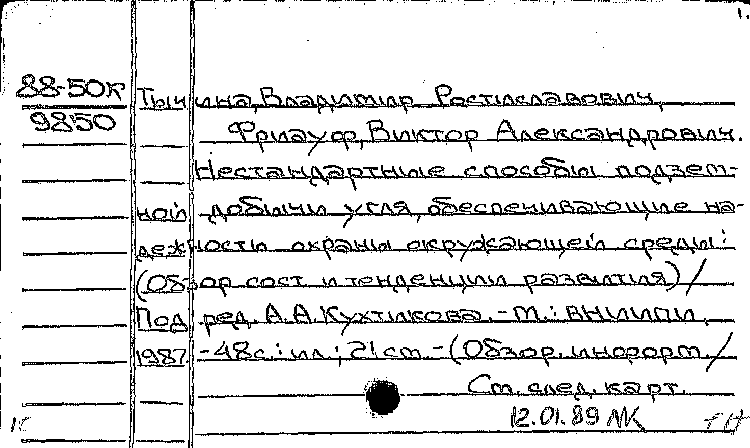 1.
88-50к Тычина, Владимир Ростиславович,
9850 Фриауф, Виктор Александрович.
Нестандартные способы подзем-
ной добычи угля, обеспечивающие на-
дежности охраны окружающей среды:
(Обзор сост и тенденции развития) /
Под ред. А.А. Кухтикова. - М.: ВНИИПИ,
1987 - 48 с.: ил; 21 см. - (Обзор. информ. /
См. след. карт.
12.01.89